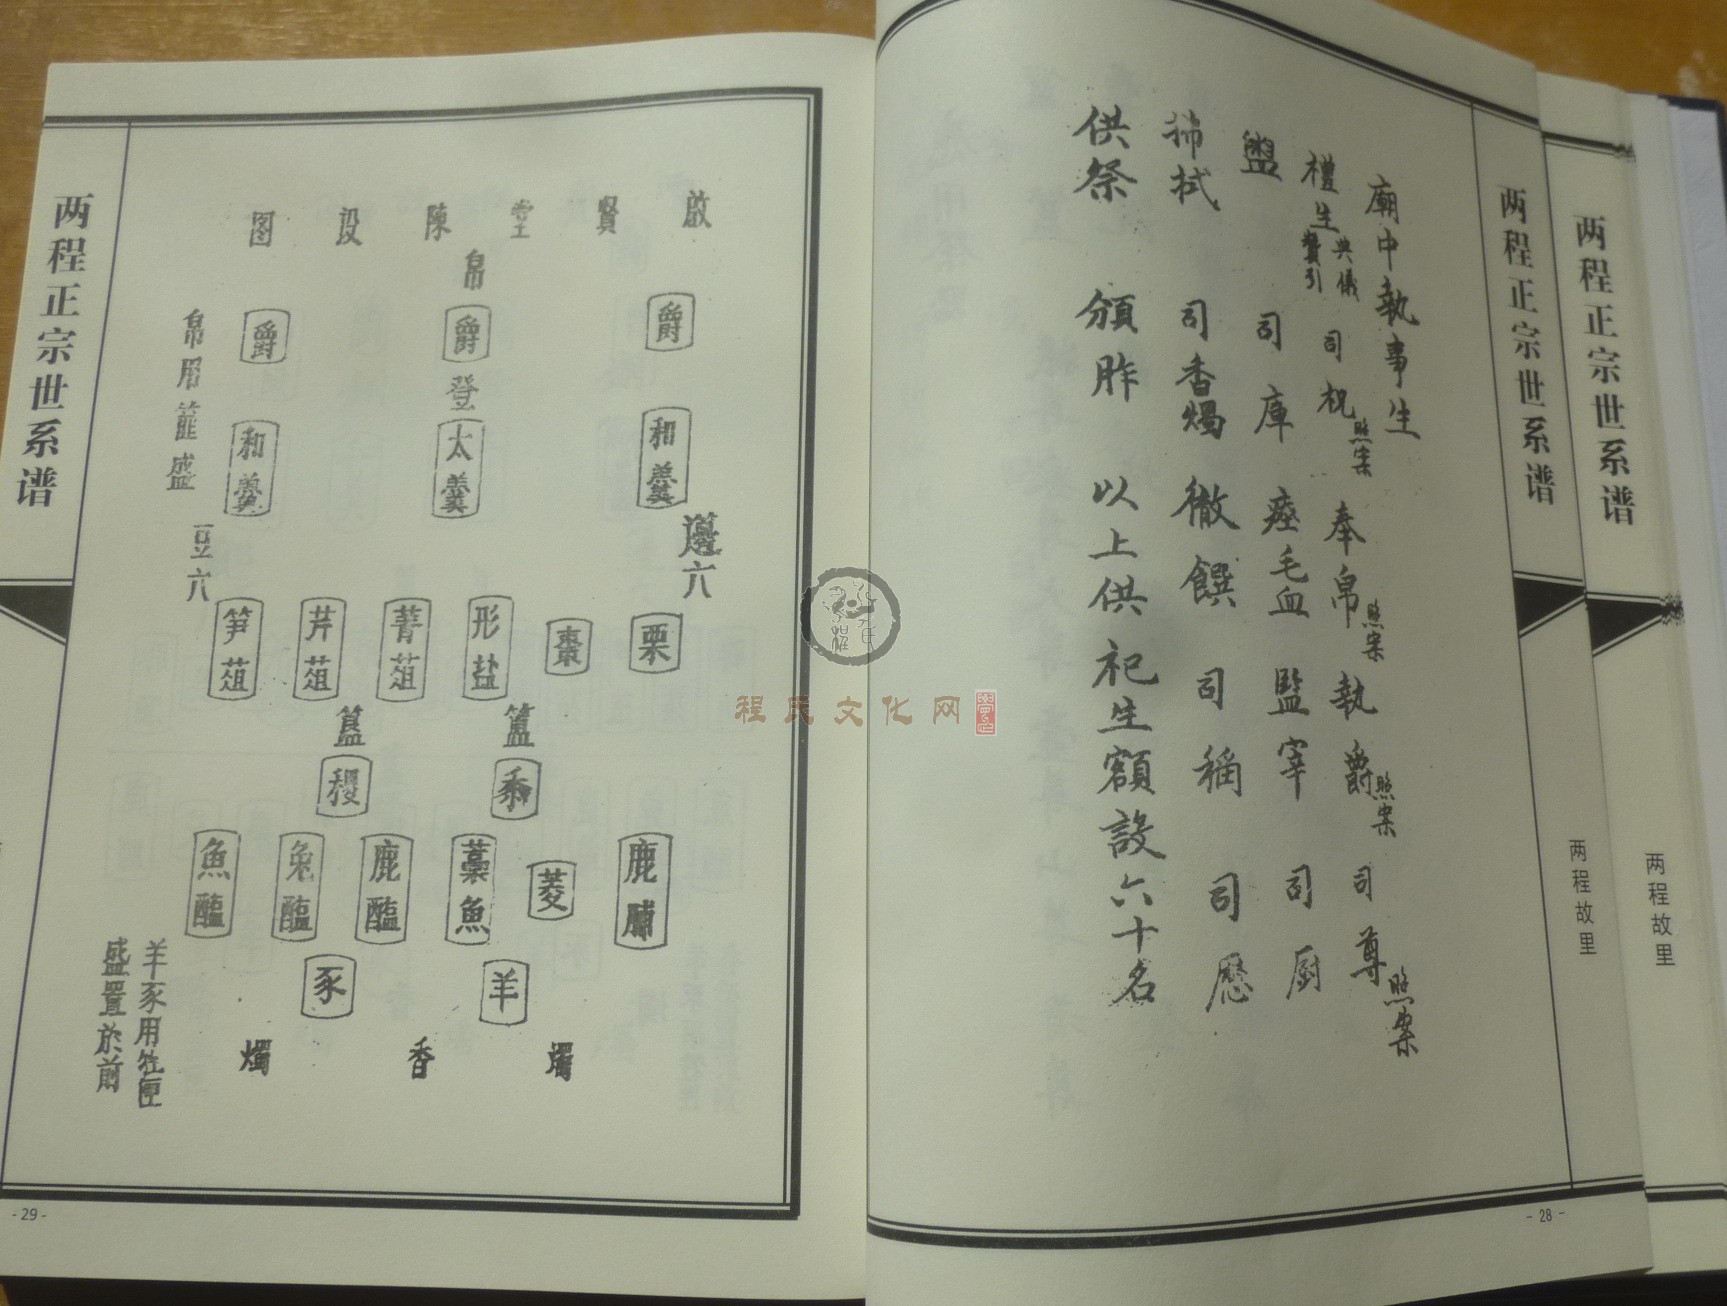 两程正宗世系谱
两程故里
两程正宗世系谱
两程故里
- 28 -
廟中執事生
禮生 典儀 贊引 司祝 照案 奉帛 照案 執爵 照案 司尊 照案
盥 司庫 瘞毛血 監宰 司厨
拂拭 司香燭 徹饌 司稱
供祭 頒胙 以上供祀生額設六十名
啟賢堂陳设图
帛
爵 爵 爵
登
和羹 太羹 和羹
帛用篚盛
籩六
豆六
栗 棗 形盐 菁菹 芹菹 笋菹
簠 簋
黍 稷
鹿脯 菱 藁魚 鹿醢 兔醢 魚醢
羊 豕
羊豕用牲匣
盛置於前
燭 香 燭
两程正宗世系谱
- 29 -
程氏文化网